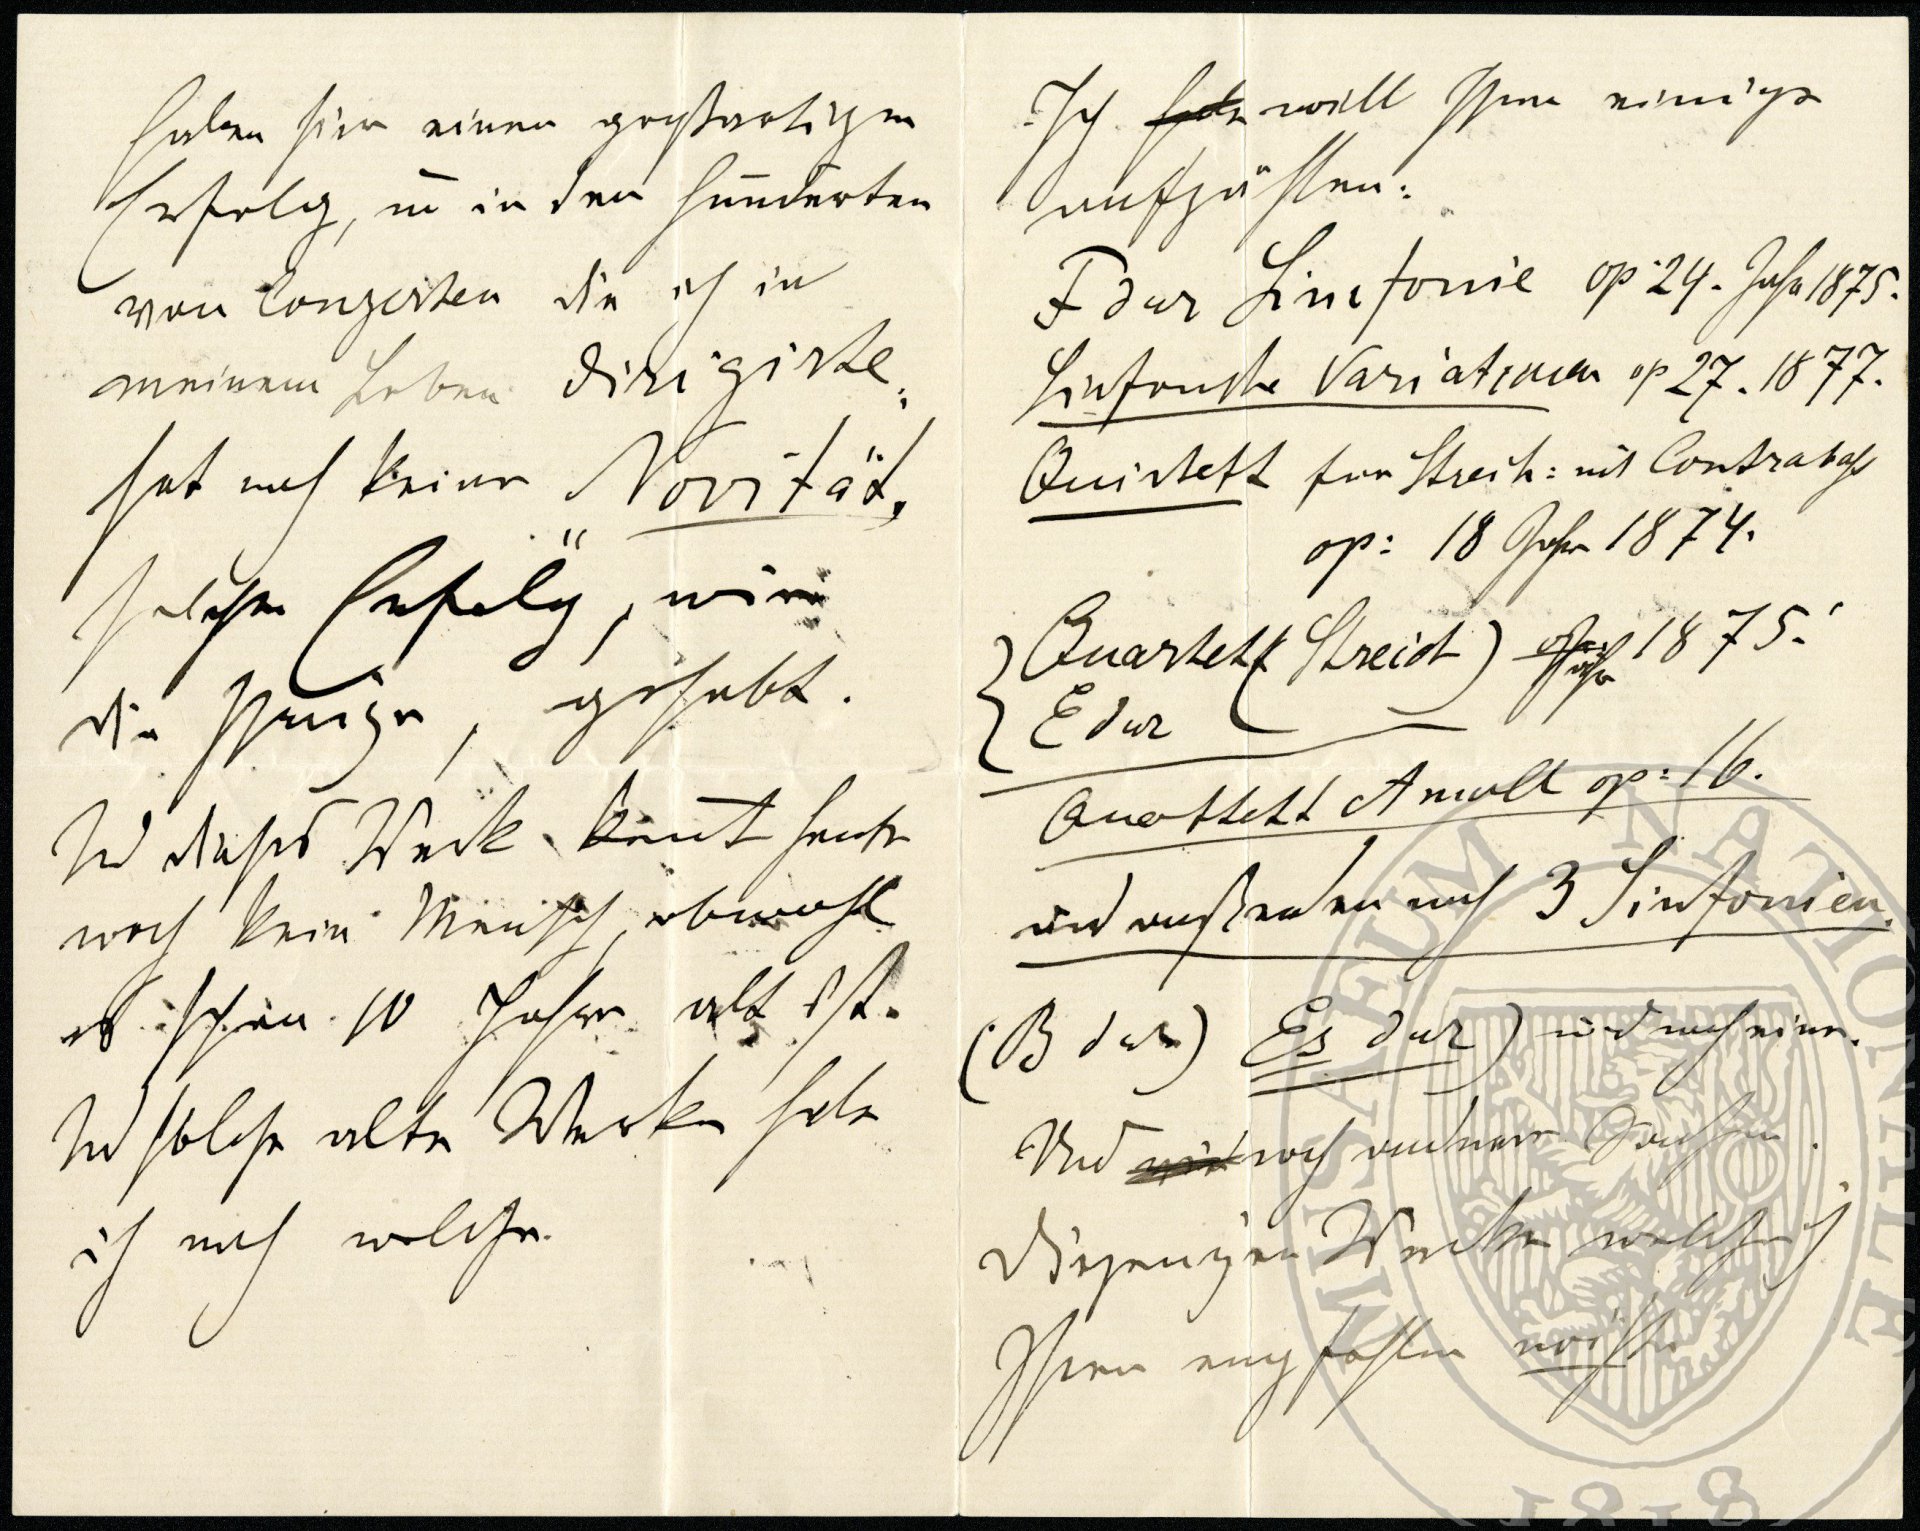 haben hier einen großartigen
Erfolg, u in den Hunderten
von Conzerten die ich in
meinem Leben dirigirte,
hat noch keine Novität,
solchen Erfolg, wie
die Ihnige, gehabt.
Und dieses Werk kent heute
noch kein Mensch, obwohl
es schon 10 Jahre alt ist.
Und solche alte Werke habe
ich noch welche.
Ich habe will Ihnen einige
aufzählen:
F dur Sinfonie op 24. Jahr 1875.
Sinfonishe Variationen op 27. 1877.
Quintett für Streich: mit Contrabaß
op: 18 Jahr 1874.
Quartett (Streich) Jahr 1875.
E dur
Quartett A moll op: 16.
und außerdem noch 3 Sinfonien.
(B dur) Es dur) und noch eine.
Und noch andere Sachen.
Diejenigen Werke welche ich
Ihnen empfehlen möchte
MUSAEUM NATIONALE
1818